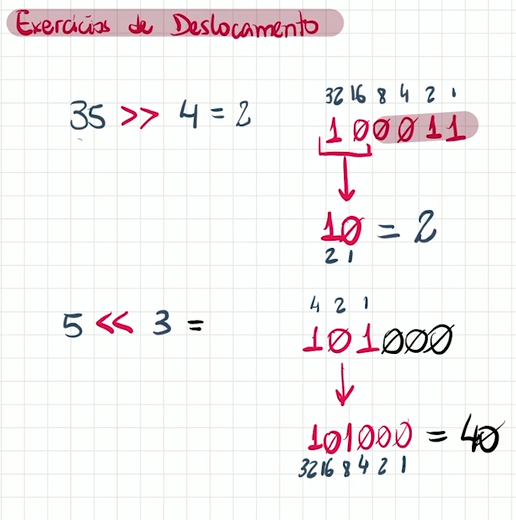 Exercícios de Deslocamento
35 >> 4 = 2
32 16 8 4 2 1
100011
10 = 2
2 1
5 << 3 =
4 2 1
101000
101000 = 40
32 16 8 4 2 1